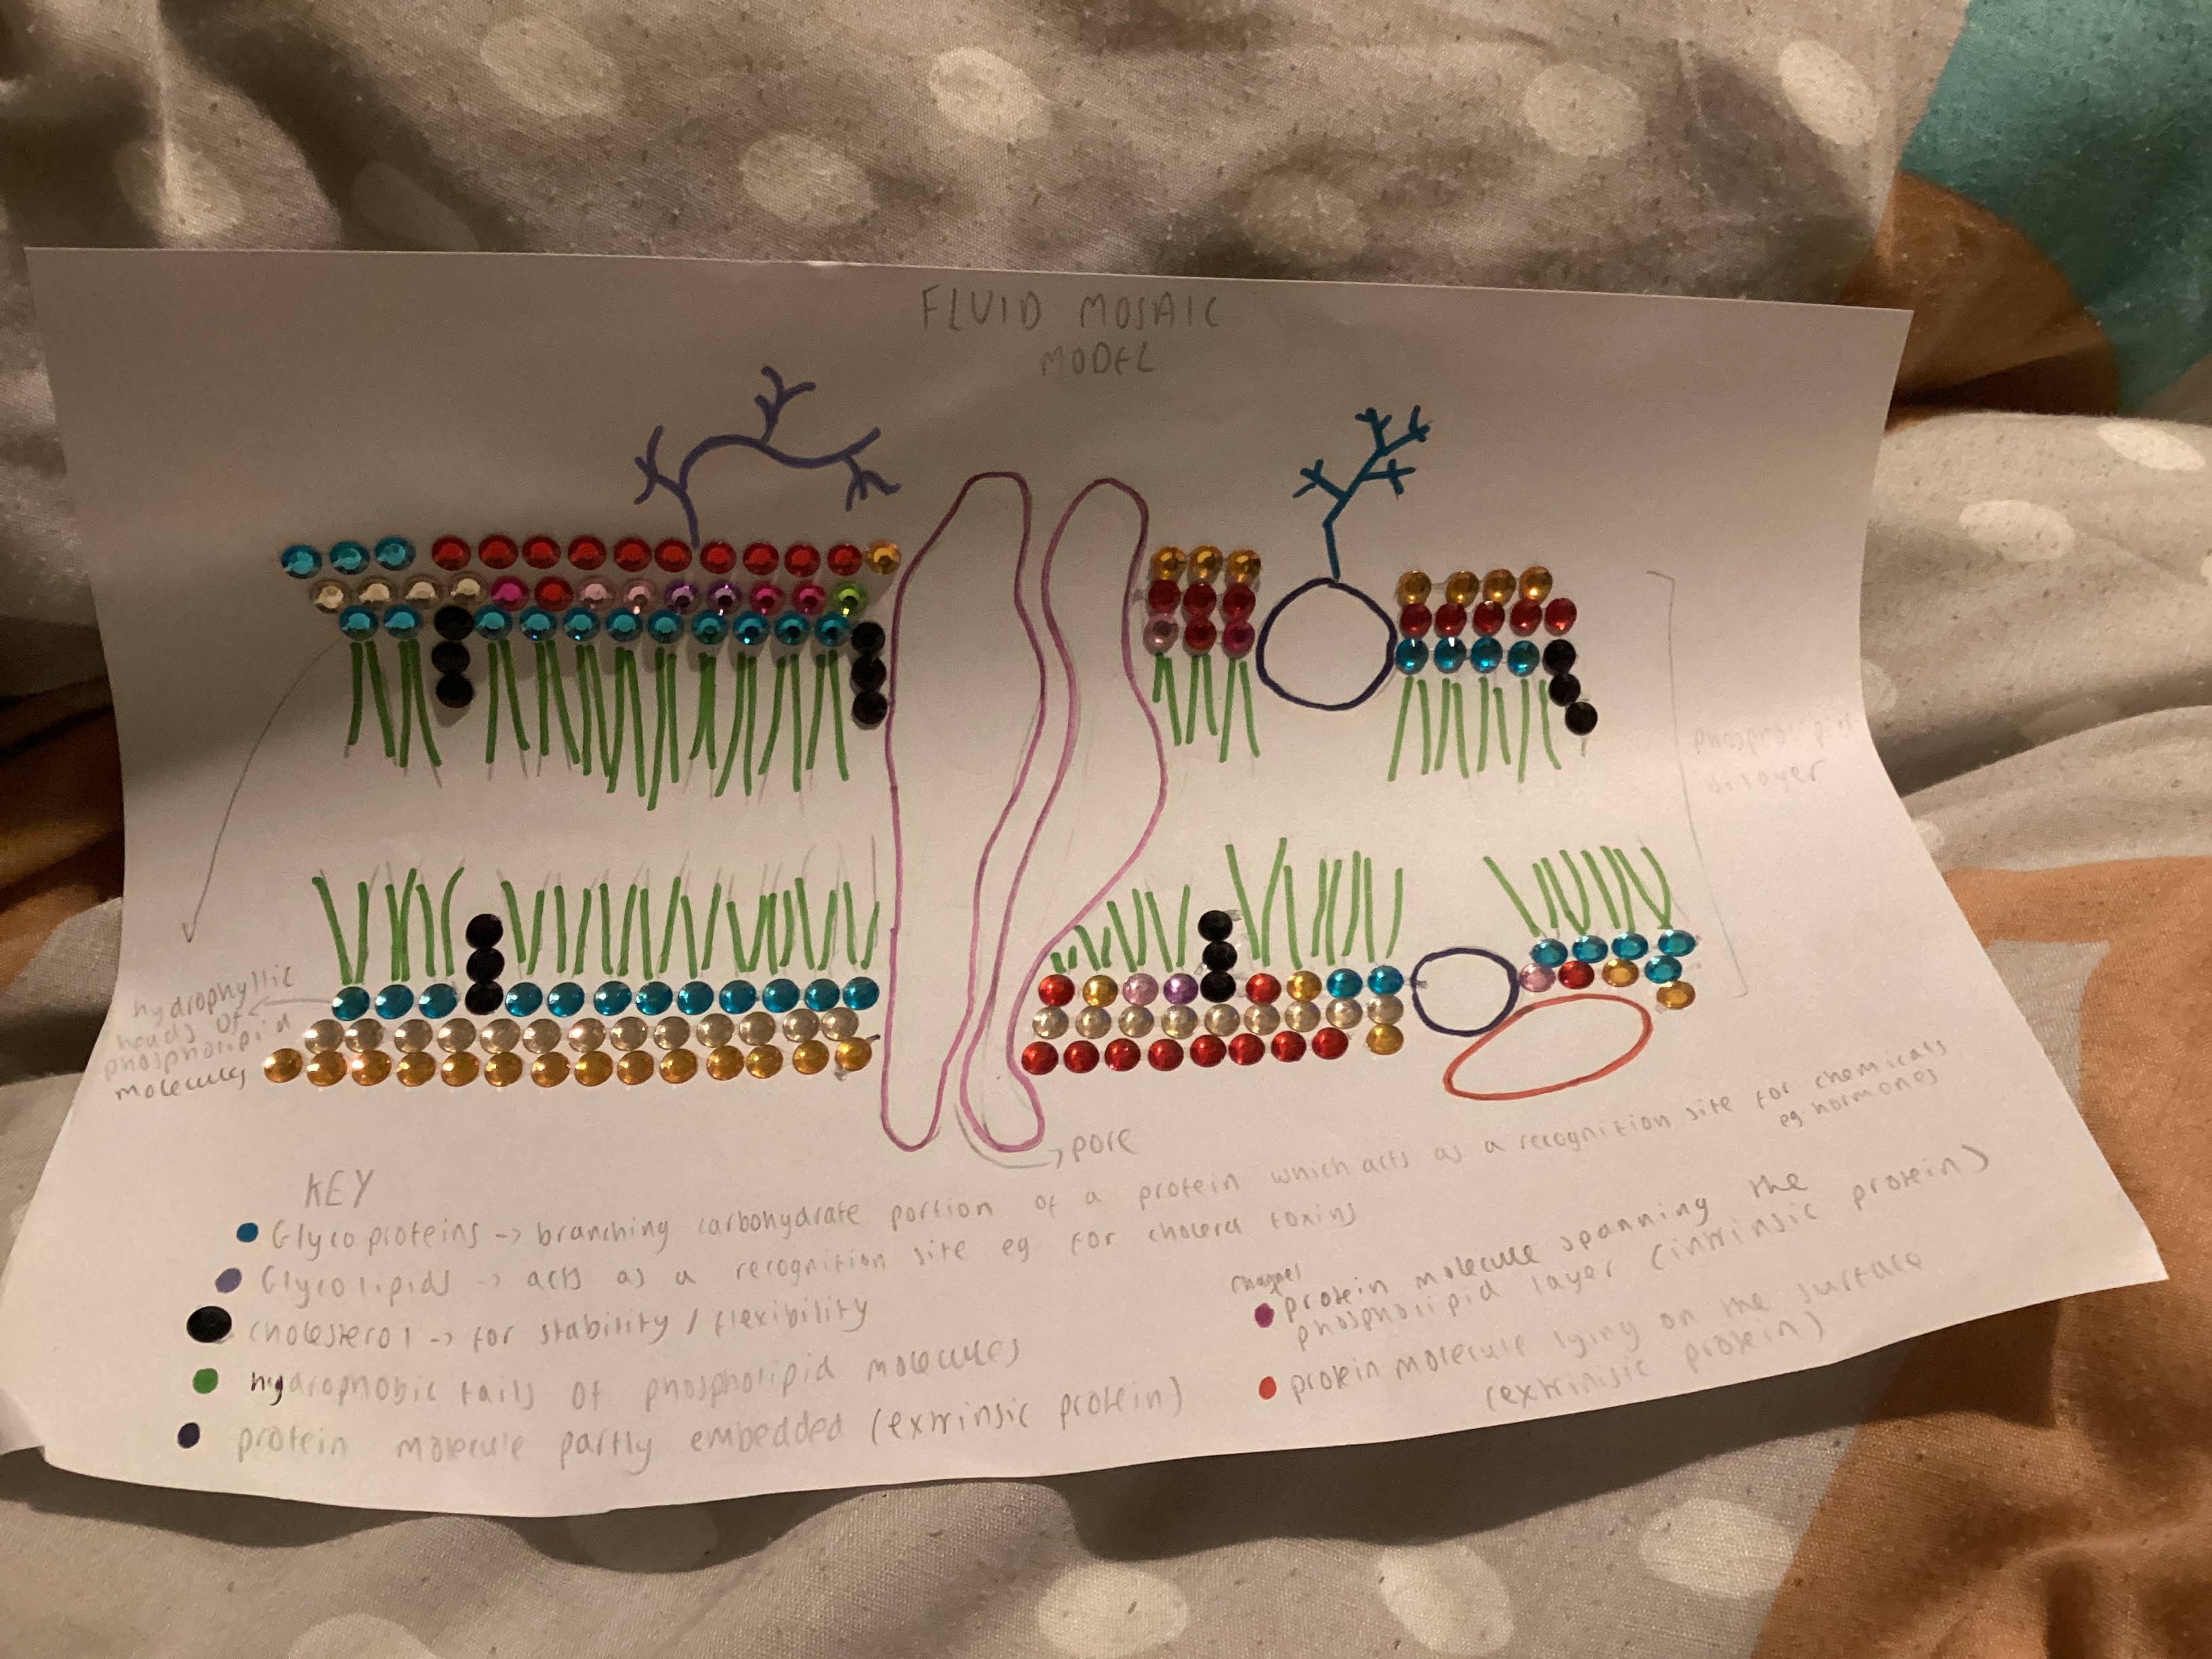 FLUID MOSAIC
MODEL
phospholipid
bilayer
hydrophyllic
heads of
phospholipid
molecules
pore
KEY
Glycoproteins -> branching carbohydrate portion of a protein which acts as a recognition site for chemicals
eg hormones
Glycolipids -> acts as a recognition site eg for cholera toxins
cholesterol -> for stability / flexibility
hydrophobic tails of phospholipid molecules
protein molecule partly embedded (extrinsic protein)
channel
protein molecule spanning the
phospholipid layer (intrinsic protein)
protein molecule lying on the surface
(extrinisic protein)